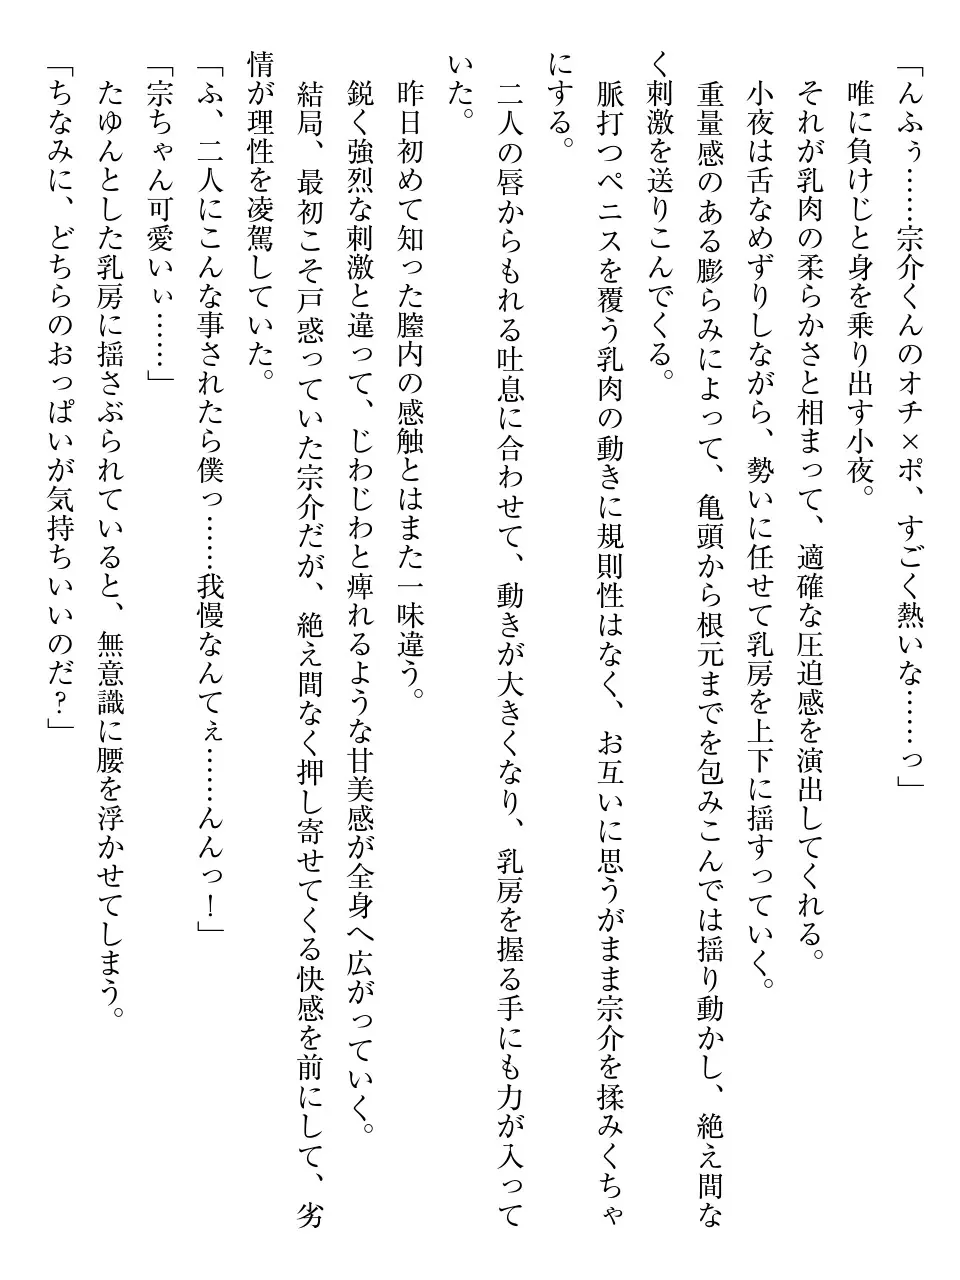 「んふぅ……宗介くんのオチ×ポ、すごく熱いな……っ」
唯に負けじと身を乗り出す小夜。
それが乳肉の柔らかさと相まって、適確な圧迫感を演出してくれる。
小夜は舌なめずりしながら、勢いに任せて乳房を上下に揺すっていく。
重量感のある膨らみによって、亀頭から根元までを包みこんでは揺り動かし、絶え間な
く刺激を送りこんでくる。
脈打つペニスを覆う乳肉の動きに規則性はなく、お互いに思うがまま宗介を揉みくちゃ
にする。
二人の唇からもれる吐息に合わせて、動きが大きくなり、乳房を握る手にも力が入って
いた。
昨日初めて知った膣内の感触とはまた一味違う。
鋭く強烈な刺激と違って、じわじわと痺れるような甘美感が全身へ広がっていく。
結局、最初こそ戸惑っていた宗介だが、絶え間なく押し寄せてくる快感を前にして、劣
情が理性を凌駕していた。
「ふ、二人にこんな事されたら僕っ……我慢なんてぇ……んんっ！」
「宗ちゃん可愛いぃ……」
たゆんとした乳房に揺さぶられていると、無意識に腰を浮かせてしまう。
「ちなみに、どちらのおっぱいが気持ちいいのだ？」